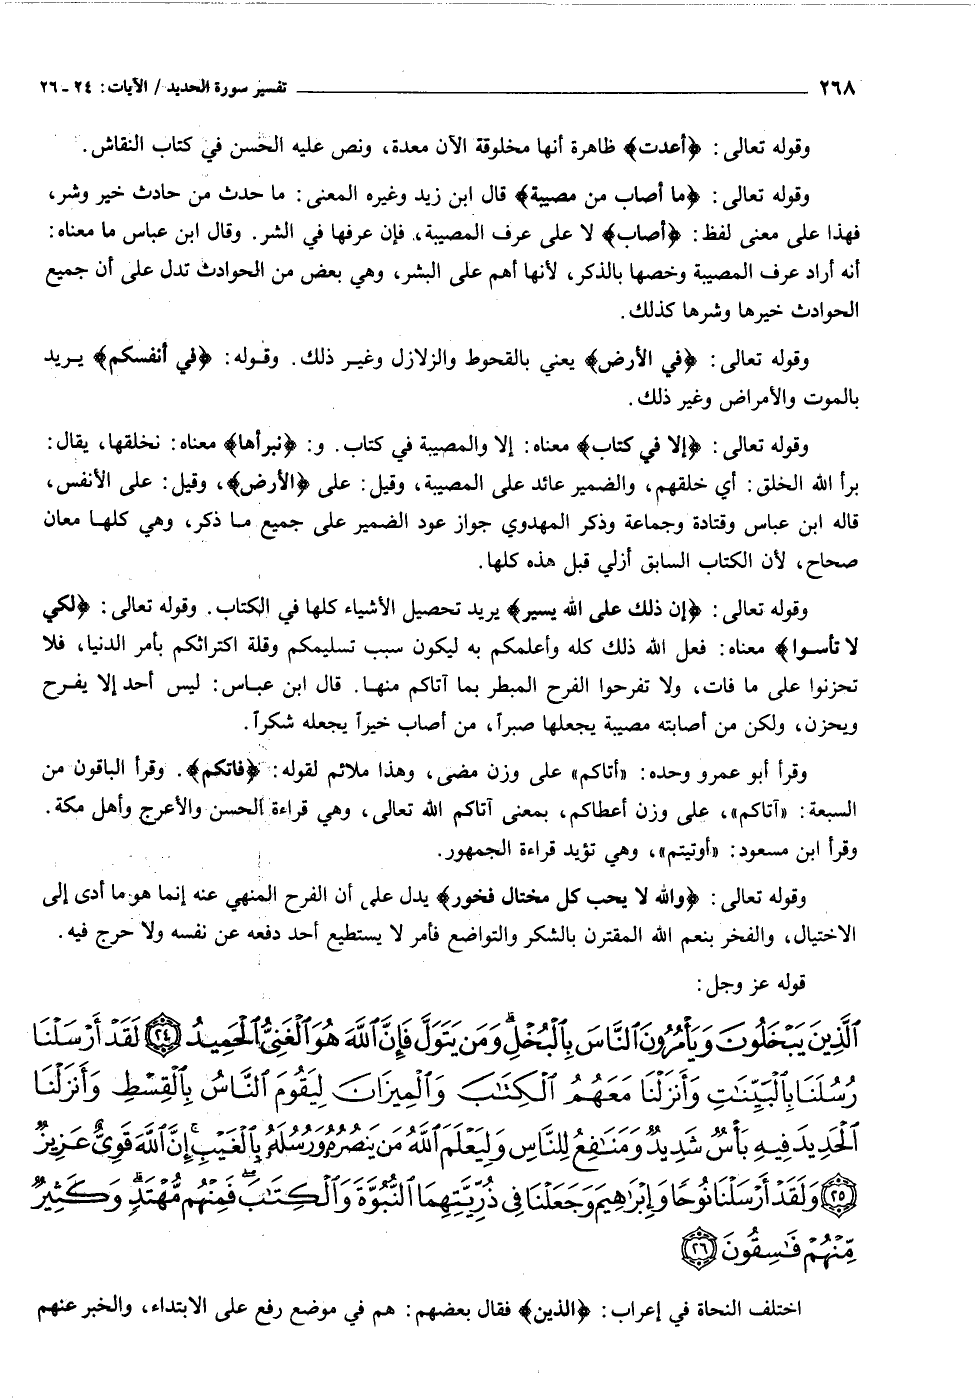 ٢٦٨ ــــــــــ تفسير سورة الحديد / الآيات: ٢٤ ـ ٢٦
وقوله تعالى: ﴿أعدت﴾ ظاهرة أنها مخلوقة الآن معدة، ونص عليه الحسن في كتاب النقاش.
وقوله تعالى: ﴿ما أصاب من مصيبة﴾ قال ابن زيد وغيره المعنى: ما حدث من حادث خير وشر،
فهذا على معنى لفظ: ﴿أصاب﴾ لا على عرف المصيبة، فإن عرفها في الشر. وقال ابن عباس ما معناه:
أنه أراد عرف المصيبة وخصها بالذكر، لأنها أهم على البشر، وهي بعض من الحوادث تدل على أن جميع
الحوادث خيرها وشرها كذلك.
وقوله تعالى: ﴿في الأرض﴾ يعني بالقحوط والزلازل وغير ذلك. وقوله: ﴿في أنفسكم﴾ يريد
بالموت والأمراض وغير ذلك.
وقوله تعالى: ﴿إلا في كتاب﴾ معناه: إلا والمصيبة في كتاب. و: ﴿نبرأها﴾ معناه: نخلقها، يقال:
برأ الله الخلق: أي خلقهم، والضمير عائد على المصيبة، وقيل: على ﴿الأرض﴾، وقيل: على الأنفس،
قاله ابن عباس وقتادة وجماعة وذكر المهدوي جواز عود الضمير على جميع ما ذكر، وهي كلها معان
صحاح، لأن الكتاب السابق أزلي قبل هذه كلها.
وقوله تعالى: ﴿إن ذلك على الله يسير﴾ يريد تحصيل الأشياء كلها في الكتاب. وقوله تعالى: ﴿لكي
لا تأسوا﴾ معناه: فعل الله ذلك كله وأعلمكم به ليكون سبب تسليمكم وقلة اكتراثكم بأمر الدنيا، فلا
تحزنوا على ما فات، ولا تفرحوا الفرح المبطر بما آتاكم منها. قال ابن عباس: ليس أحد إلا يفرح
ويحزن، ولكن من أصابته مصيبة يجعلها صبراً، من أصاب خيراً يجعله شكراً.
وقرأ أبو عمرو وحده: «أتاكم» على وزن مضى، وهذا ملائم لقوله: ﴿فاتكم﴾. وقرأ الباقون من
السبعة: «آتاكم»، على وزن أعطاكم، بمعنى آتاكم الله تعالى، وهي قراءة الحسن والأعرج وأهل مكة.
وقرأ ابن مسعود: «أوتيتم»، وهي تؤيد قراءة الجمهور.
وقوله تعالى: ﴿والله لا يحب كل مختال فخور﴾ يدل على أن الفرح المنهي عنه إنما هو ما أدى إلى
الاختيال، والفخر بنعم الله المقترن بالشكر والتواضع فأمر لا يستطيع أحد دفعه عن نفسه ولا حرج فيه.
قوله عز وجل:
ٱلَّذِينَ يَبْخَلُونَ وَيَأْمُرُونَ ٱلنَّاسَ بِٱلْبُخْلِ ۗ وَمَن يَتَوَلَّ فَإِنَّ ٱللَّهَ هُوَ ٱلْغَنِىُّ ٱلْحَمِيدُ ﴿٢٤﴾ لَقَدْ أَرْسَلْنَا
رُسُلَنَا بِٱلْبَيِّنَـٰتِ وَأَنزَلْنَا مَعَهُمُ ٱلْكِتَـٰبَ وَٱلْمِيزَانَ لِيَقُومَ ٱلنَّاسُ بِٱلْقِسْطِ وَأَنزَلْنَا
ٱلْحَدِيدَ فِيهِ بَأْسٌ شَدِيدٌ وَمَنَـٰفِعُ لِلنَّاسِ وَلِيَعْلَمَ ٱللَّهُ مَن يَنصُرُهُۥ وَرُسُلَهُۥ بِٱلْغَيْبِ ۚ إِنَّ ٱللَّهَ قَوِىٌّ عَزِيزٌ
﴿٢٥﴾ وَلَقَدْ أَرْسَلْنَا نُوحًا وَإِبْرَٰهِيمَ وَجَعَلْنَا فِى ذُرِّيَّتِهِمَا ٱلنُّبُوَّةَ وَٱلْكِتَـٰبَ ۖ فَمِنْهُم مُّهْتَدٍ ۖ وَكَثِيرٌ
مِّنْهُمْ فَـٰسِقُونَ ﴿٢٦﴾
اختلف النحاة في إعراب: ﴿الذين﴾ فقال بعضهم: هم في موضع رفع على الابتداء، والخبر عنهم